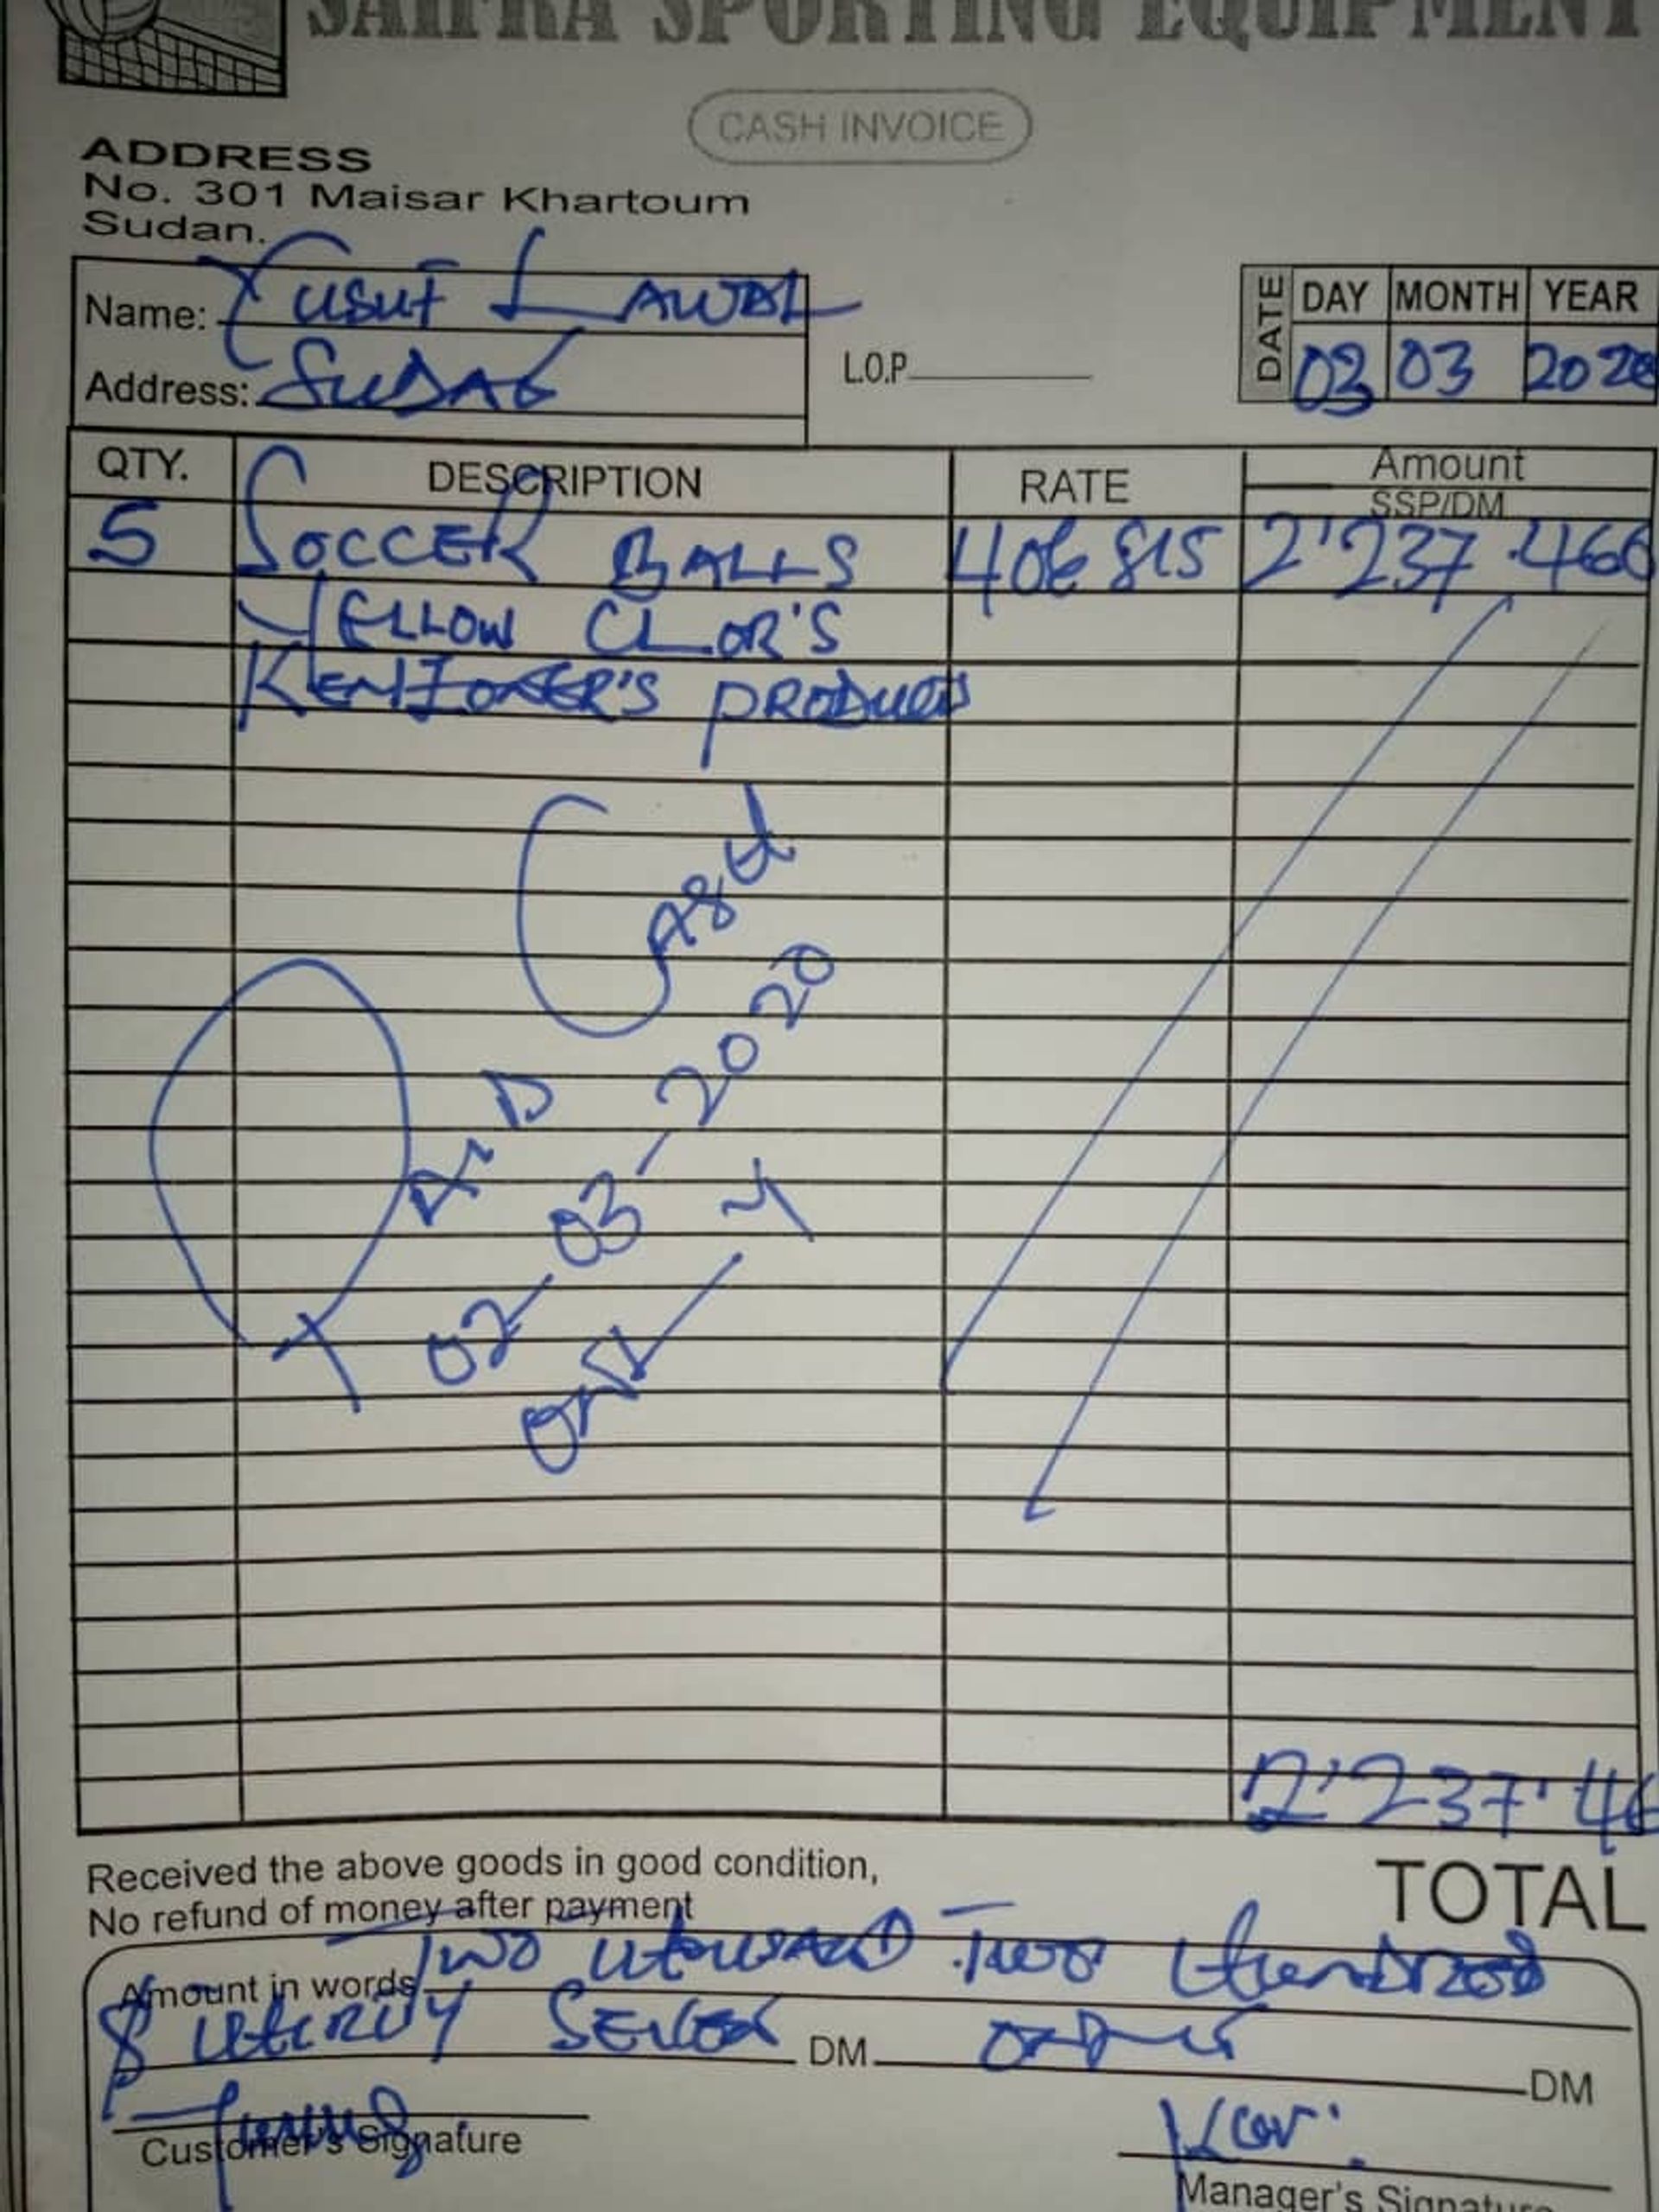 SAIFRA SPORTING EQUIPMENT
CASH INVOICE
ADDRESS
No. 301 Maisar Khartoum
Sudan.
Name: Yusuf LAWAL
Address: SUDAN
L.O.P
DATE DAY MONTH YEAR
03 03 2020
QTY. DESCRIPTION RATE Amount
SSP/DM
5 SOCCER BALLS 406 815 2'237.460
YELLOW CLOR'S
PRODUCTS
CASH
PAID
02-03-2020
ONLY
2'237.46
Received the above goods in good condition,
No refund of money after payment
TOTAL
Amount in words Two thousand Two Hundred
& thirty Seven DM only DM
Customer's Signature
Manager's Signature